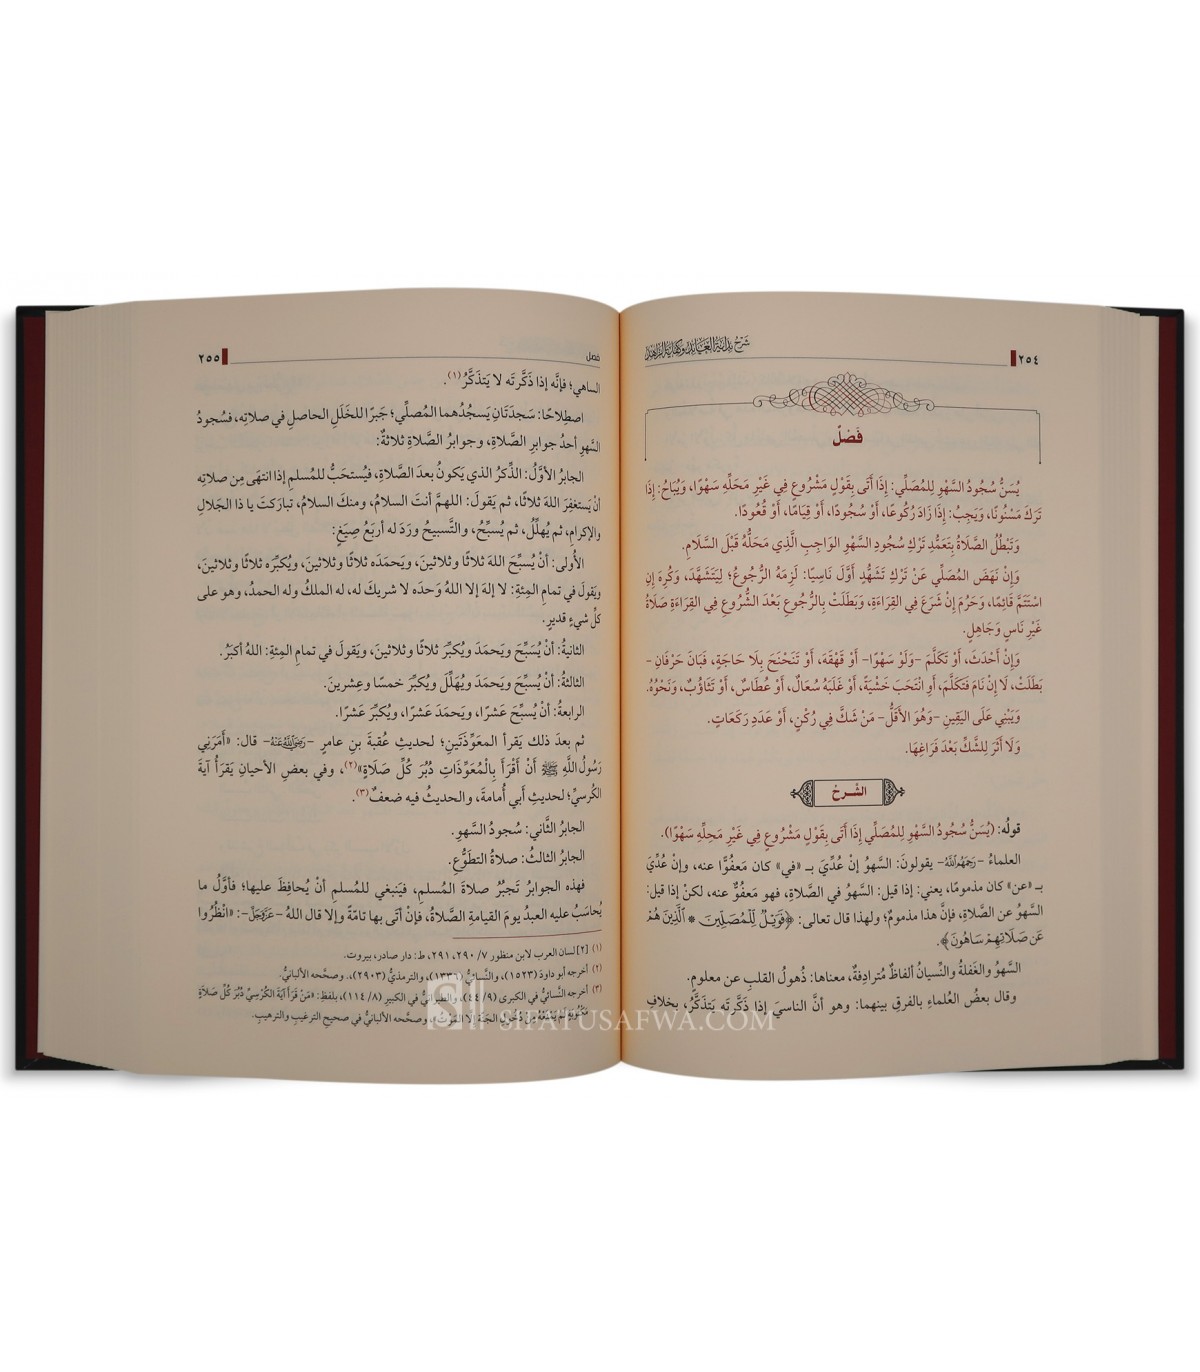 ٢٥٤
شرح بداية العابد وكفاية الزاهد
فَصْلٌ
يُسَنُّ سُجُودُ السَّهْوِ لِلمُصَلِّي: إِذَا أَتَى بِقَوْلٍ مَشْرُوعٍ فِي غَيْرِ مَحَلِّهِ سَهْوًا، وَيُبَاحُ: إِذَا
تَرَكَ مَسْنُونًا، وَيَجِبُ: إِذَا زَادَ رُكُوعًا، أَوْ سُجُودًا، أَوْ قِيَامًا، أَوْ قُعُودًا.
وَتَبْطُلُ الصَّلَاةُ بِتَعَمُّدِ تَرْكِ سُجُودِ السَّهْوِ الوَاجِبِ الَّذِي مَحَلُّهُ قَبْلَ السَّلَامِ.
وَإِنْ نَهَضَ المُصَلِّي عَنْ تَرْكِ تَشَهُّدٍ أَوَّلَ نَاسِيًا: لَزِمَهُ الرُّجُوعُ؛ لِيَتَشَهَّدَ، وَكُرِهَ إِنِ
اسْتَتَمَّ قَائِمًا، وَحَرُمَ إِنْ شَرَعَ فِي القِرَاءَةِ، وَبَطَلَتْ بِالرُّجُوعِ بَعْدَ الشُّرُوعِ فِي القِرَاءَةِ صَلَاةُ
غَيْرِ نَاسٍ وَجَاهِلٍ.
وَإِنْ أَحْدَثَ، أَوْ تَكَلَّمَ -وَلَوْ سَهْوًا- أَوْ قَهْقَهَ، أَوْ تَنَحْنَحَ بِلَا حَاجَةٍ، فَبَانَ حَرْفَانِ -
بَطَلَتْ، لَا إِنْ نَامَ فَتَكَلَّمَ، أَوِ انْتَحَبَ خَشْيَةً، أَوْ غَلَبَهُ سُعَالٌ، أَوْ عُطَاسٌ، أَوْ تَثَاؤُبٌ، وَنَحْوُهُ.
وَيَبْنِي عَلَى اليَقِينِ -وَهُوَ الأَقَلُّ- مَنْ شَكَّ فِي رُكْنٍ، أَوْ عَدَدِ رَكَعَاتٍ.
وَلَا أَثَرَ لِلشَّكِّ بَعْدَ فَرَاغِهَا.
الشَّرْحُ
قولُه: (يُسَنُّ سُجُودُ السَّهْوِ لِلمُصَلِّي إِذَا أَتَى بِقَوْلٍ مَشْرُوعٍ فِي غَيْرِ مَحِلِّهِ سَهْوًا).
العلماءُ -رَحِمَهُمُ اللَّهُ- يقولونَ: السَّهوُ إنْ عُدِّيَ بـ «في» كان مَعفُوًّا عنه، وإنْ عُدِّيَ
بـ «عن» كان مذمومًا، يعني: إذا قيل: السَّهوُ في الصَّلاةِ، فهو مَعفُوٌّ عنه، لكنْ إذا قيل:
السَّهوُ عن الصَّلاةِ، فإنَّ هذا مذمومٌ؛ ولهذا قال تعالى: ﴿فَوَيْلٌ لِّلْمُصَلِّينَ * الَّذِينَ هُمْ
عَن صَلَاتِهِمْ سَاهُونَ﴾.
السَّهوُ والغَفلةُ والنِّسيانُ ألفاظٌ مُترادِفةٌ، معناها: ذُهولُ القلبِ عن معلومٍ.
وقال بعضُ العُلماءِ بالفرقِ بينهما: وهو أنَّ الناسيَ إذا ذَكَّرتَه يَتذَكَّرُ، بخلافِ
فصل
٢٥٥
الساهي؛ فإنَّه إذا ذَكَّرتَه لا يَتذَكَّرُ(١).
اصطِلاحًا: سَجدَتَانِ يَسجُدُهما المُصلِّي؛ جَبرًا للخَلَلِ الحاصلِ في صلاتِه، فسُجودُ
السَّهوِ أحدُ جوابرِ الصَّلاةِ، وجوابرُ الصَّلاةِ ثلاثةٌ:
الجابرُ الأوَّلُ: الذِّكرُ الذي يَكونُ بعدَ الصَّلاةِ، فيُستحَبُّ للمُسلمِ إذا انتهَى مِن صلاتِه
أنْ يَستغفِرَ اللهَ ثلاثًا، ثم يَقولَ: اللهمَّ أنتَ السلامُ، ومنكَ السلامُ، تباركتَ يا ذا الجَلالِ
والإكرامِ، ثم يُهلِّلُ، ثم يُسبِّحُ، والتَّسبيحُ ورَدَ له أربَعُ صِيَغٍ:
الأُولى: أنْ يُسبِّحَ اللهَ ثلاثًا وثلاثينَ، ويَحمَدَه ثلاثًا وثلاثينَ، ويُكبِّرَه ثلاثًا وثلاثينَ،
ويَقولَ في تمامِ المِئةِ: لا إلهَ إلا اللهُ وَحدَه لا شريكَ له، له الملكُ وله الحمدُ، وهو على
كلِّ شيءٍ قديرٍ.
الثانيةُ: أنْ يُسبِّحَ ويَحمَدَ ويُكبِّرَ ثلاثًا وثلاثينَ، ويَقولَ في تمامِ المِئةِ: اللهُ أكبَرُ.
الثالثةُ: أنْ يُسبِّحَ ويَحمَدَ ويُهلِّلَ ويُكبِّرَ خمسًا وعِشرينَ.
الرابعةُ: أنْ يُسبِّحَ عَشرًا، ويَحمَدَ عَشرًا، ويُكبِّرَ عَشرًا.
ثم بعدَ ذلك يَقرأُ المعوِّذَتَينِ؛ لحديثِ عُقبةَ بنِ عامرٍ -رَضِيَ اللَّهُ عَنْهُ- قال: «أَمَرَنِي
رَسُولُ اللَّهِ ﷺ أَنْ أَقْرَأَ بِالْمُعَوِّذَاتِ دُبُرَ كُلِّ صَلَاةٍ»(٢)، وفي بعضِ الأحيانِ يَقرأُ آيةَ
الكُرسيِّ؛ لحديثِ أَبي أُمامةَ، والحديثُ فيه ضعفٌ(٣).
الجابرُ الثَّاني: سُجودُ السَّهوِ.
الجابرُ الثالثُ: صلاةُ التطوُّعِ.
فهذه الجوابرُ تَجبُرُ صلاةَ المُسلمِ، فيَنبغي للمُسلمِ أنْ يُحافِظَ عليها؛ فأوَّلُ ما
يُحاسَبُ عليه العبدُ يومَ القيامةِ الصَّلاةُ، فإنْ أتَى بها تامَّةً وإلا قال اللهُ -عَزَّ وَجَلَّ-: «انْظُرُوا
(١) [٢] لسان العرب لابن منظور ٧/ ٢٩٠، ٢٩١، ط: دار صادر، بيروت.
(٢) أخرجه أبو داودَ (١٥٢٣)، والنَّسائيُّ (١٣٣٦)، والترمذيُّ (٢٩٠٣)، وصحَّحه الألبانيُّ.
(٣) أخرجه النَّسائيُّ في الكبرى (٩/ ٤٤)، والطبرانيُّ في الكبير (٨/ ١١٤)، بلفظِ: «مَنْ قَرَأَ آيَةَ الكُرْسِيِّ دُبُرَ كُلِّ صَلَاةٍ
مَكْتُوبَةٍ لَمْ يَمْنَعْهُ مِنْ دُخُولِ الجَنَّةِ إلا المَوْتُ»، وصحَّحه الألبانيُّ في صحيحِ الترغيبِ والترهيبِ.
SIFATUSAFWA.COM